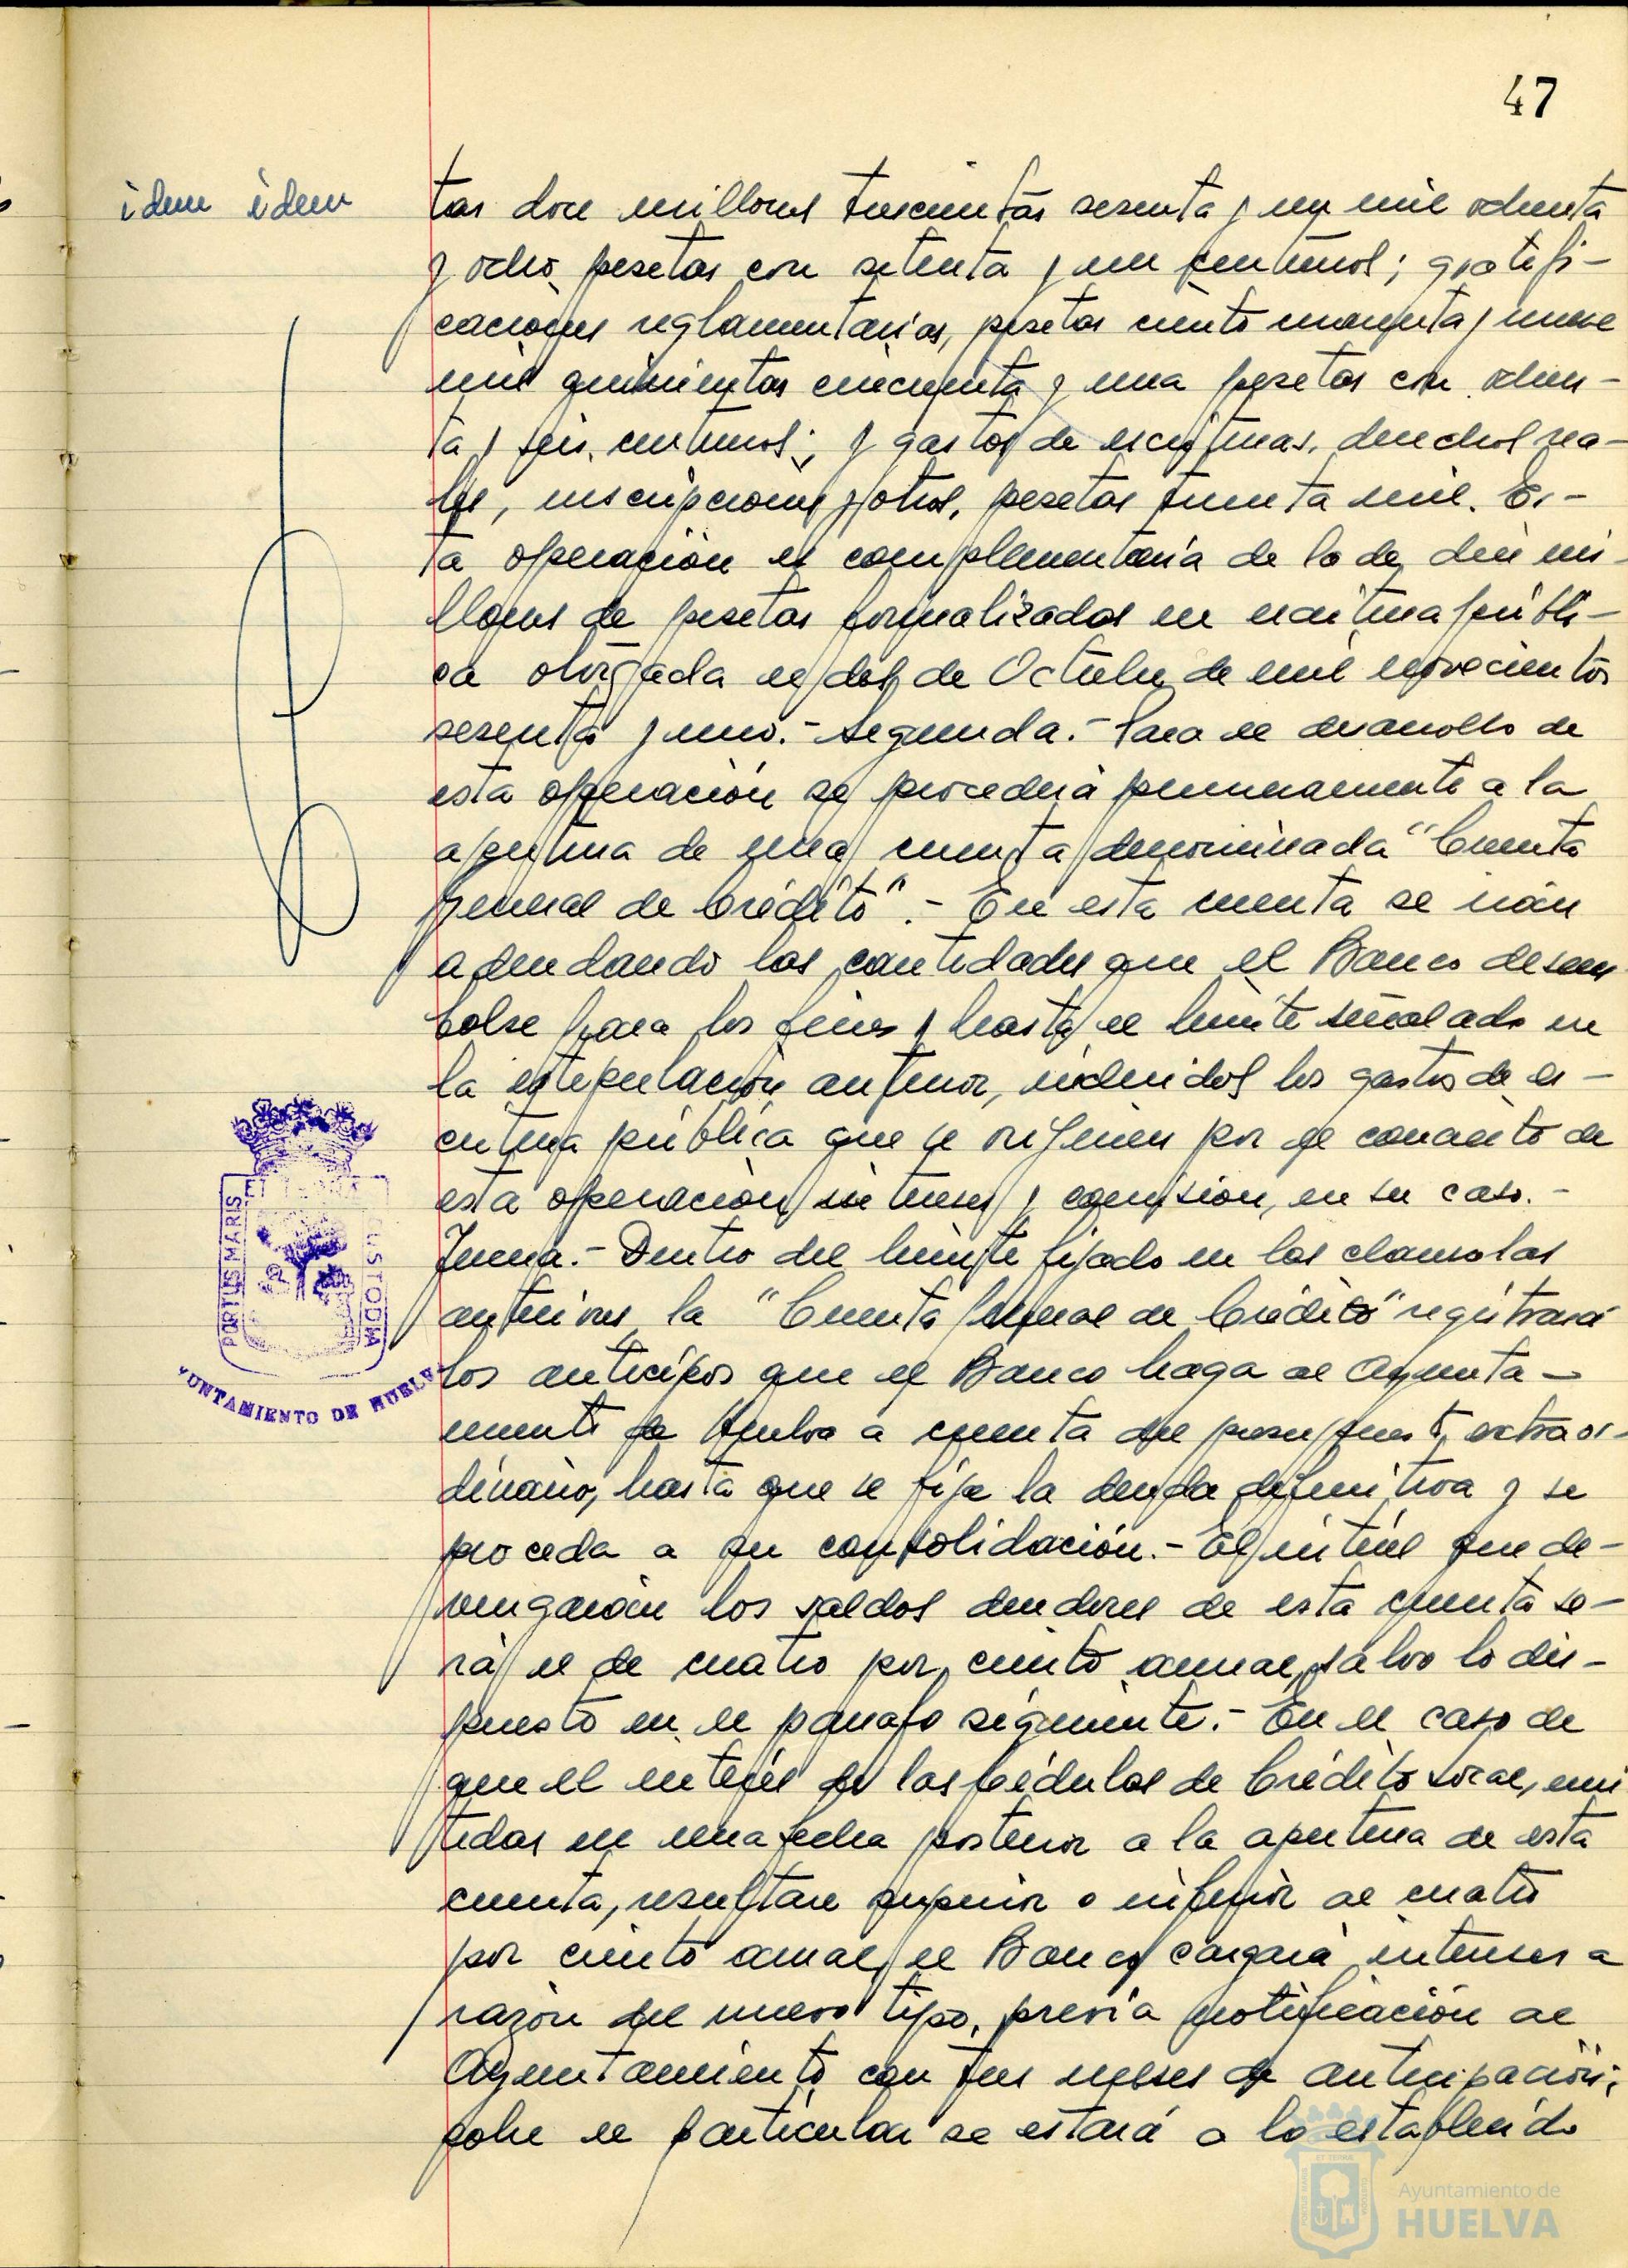 47
idem idem
tas doce millones trescientas sesenta y un mil ochenta
y ocho pesetas con setenta y un céntimos; gratifi-
caciones reglamentarias, pesetas ciento cuarenta y nueve
mil quinientas cincuenta y una pesetas con ochen-
ta y seis céntimos; y gastos de escrituras, derechos rea-
les, inscripciones y otros, pesetas treinta mil. Es-
ta operación es complementaria de la de diez mi-
llones de pesetas formalizadas en escritura públi-
ca otorgada el dos de Octubre de mil novecientos
sesenta y uno.- Segunda.- Para el desarrollo de
esta operación se procederá primeramente a la
apertura de una cuenta denominada "Cuenta
General de Crédito".- En esta cuenta se irán
adeudando las cantidades que el Banco desem-
bolse para los fines y hasta el límite señalado en
la estipulación anterior, incluidos los gastos de es-
critura pública que se originen por el concierto de
esta operación, intereses y comisión, en su caso.-
Tercera.- Dentro del límite fijado en las clausolas
anteriores la "Cuenta General de Crédito" registrará
los anticipos que el Banco haga al Ayunta-
miento de Huelva a cuenta del presupuesto extraor-
dinario, hasta que se fije la deuda definitiva y se
proceda a su consolidación.- El interés que de-
vengarán los saldos deudores de esta cuenta se-
rá el de cuatro por ciento anual, salvo lo dis-
puesto en el párrafo siguiente.- En el caso de
que el interés de las Cédulas de Crédito Local, emi
tidas en una fecha posterior a la apertura de esta
cuenta, resultare superior o inferior al cuatro
por ciento anual, el Banco cargará intereses a
razón del nuevo tipo, previa notificación al
Ayuntamiento con tres meses de anticipación;
sobre el particular se estará a lo establecido
PORTUS MARIS
ET TERRA
CUSTODIA
AYUNTAMIENTO DE HUELVA
Ayuntamiento de
HUELVA